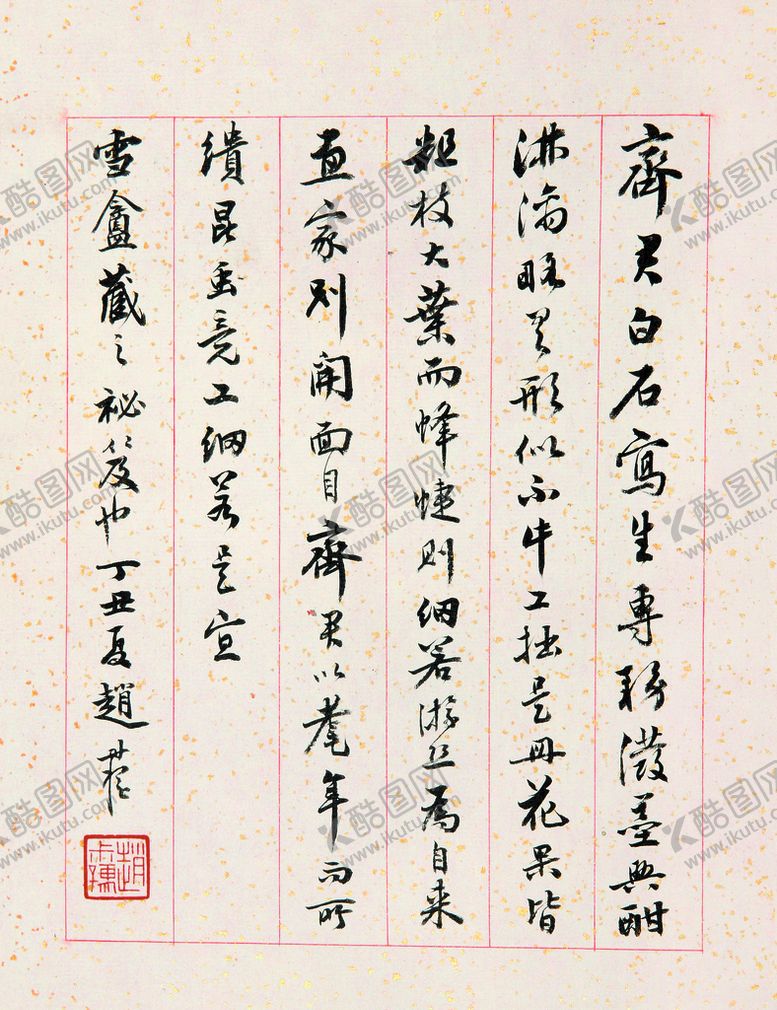 齊君白石寫生專務潑墨興酣
淋漓略具形似不計工拙是冊花果皆
粗枝大葉而蜂蜨則細若游絲為自來
畫家別開面目齊君以耄年而所
繢昆虫竟工細若是宜
雪盦藏之祕笈也丁丑夏趙
酷图网
www.ikutu.com